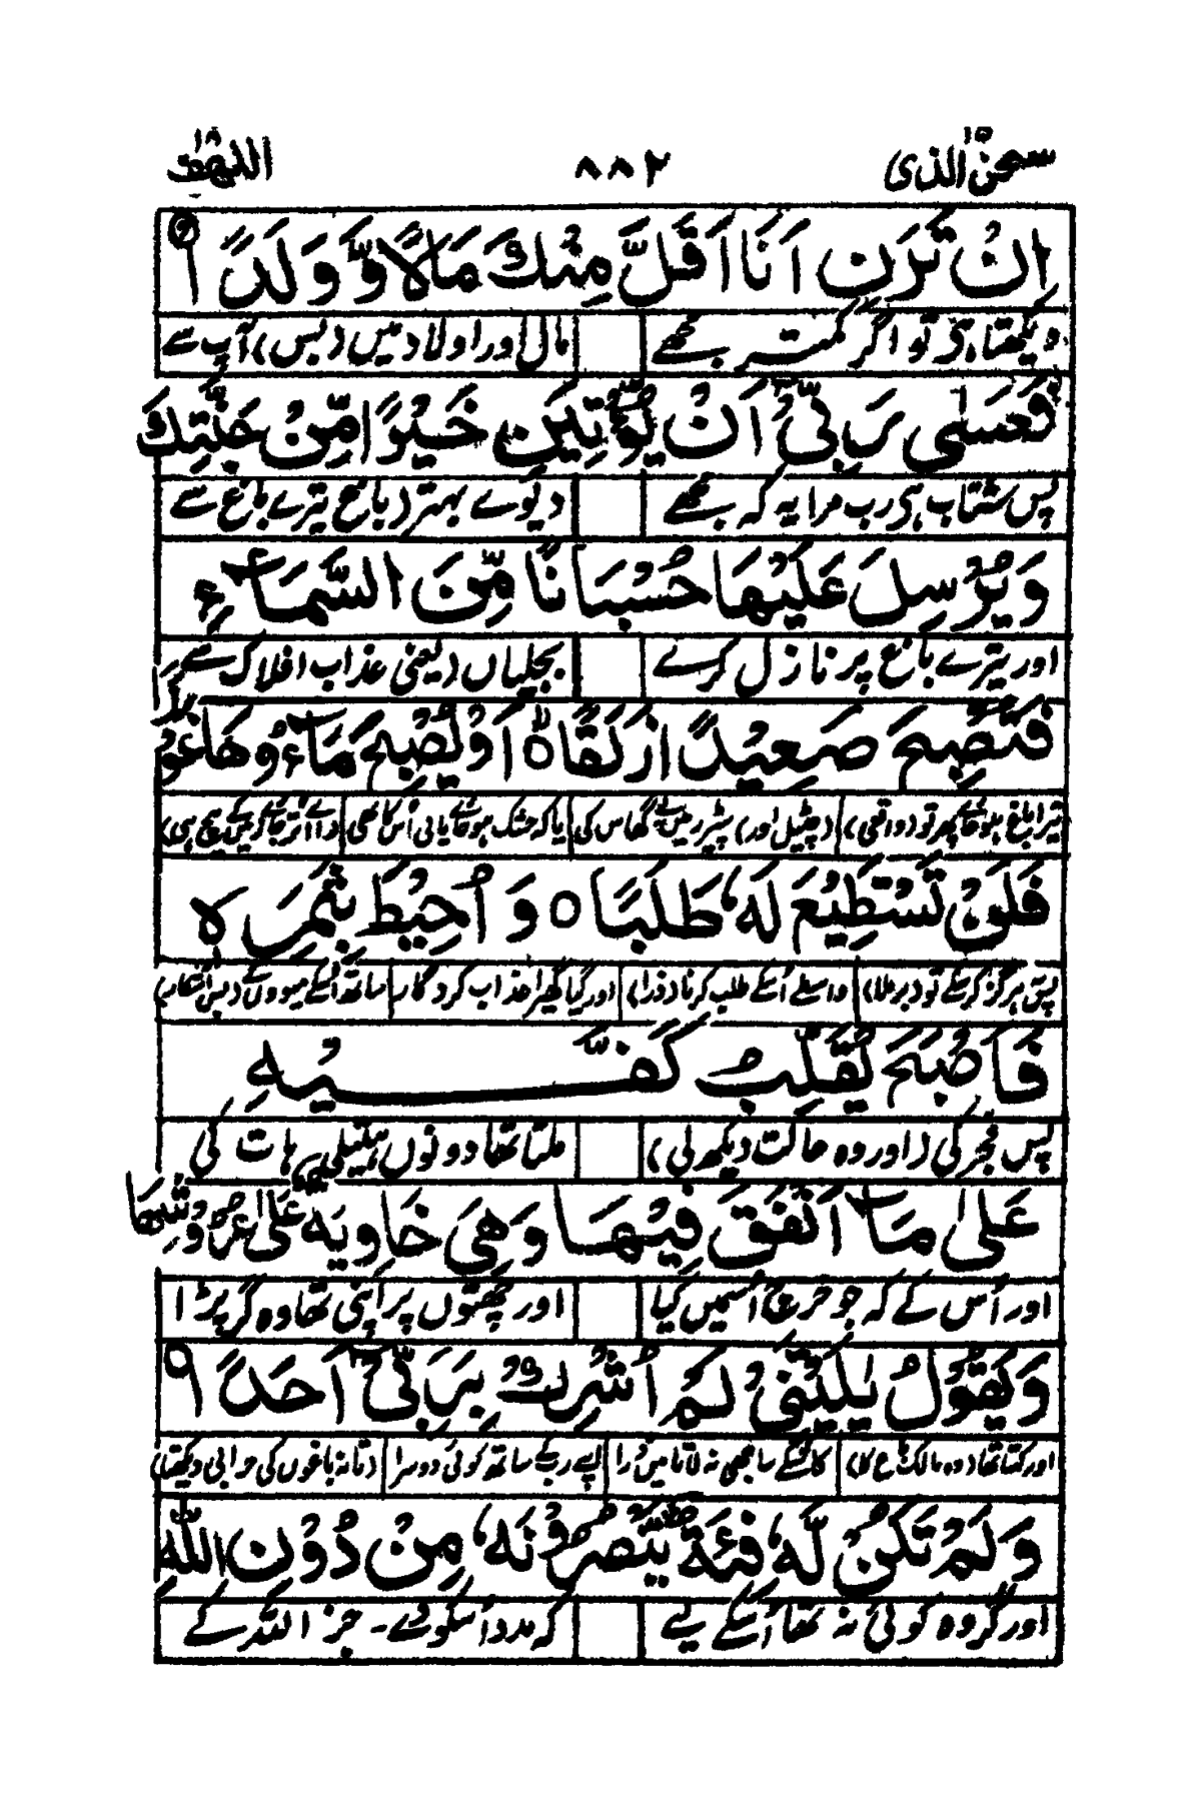 سبحٰن الذی ۱۵ ۸۸۲ الکھف ۱۸
اِنْ تَرَنِ اَنَا اَقَلَّ مِنْكَ مَالًا وَّ وَلَدًا
دیکھتا ہی تو اگر کمتر مجھے مال اور اولاد میں (بس) آپ سے
فَعَسٰى رَبِّیْۤ اَنْ یُّؤْتِیَنِ خَیْرًا مِّنْ جَنَّتِكَ
پس شتاب ہی رب مرا یہ کہ مجھے دیوے بہتر (باغ تیرے باغ سے
وَ یُرْسِلَ عَلَیْهَا حُسْبَانًا مِّنَ السَّمَآءِ
اور تیرے باغ پر نازل کرے بجلیاں (یعنی عذاب افلاک سے
فَتُصْبِحَ صَعِیْدًا زَلَقًا ○ اَوْ یُصْبِحَ مَآؤُهَا غَوْرًا
تیرا باغ ہو جائے پھر تو (واقعی) (چٹیل اور) گھاس کی یا کہ خشک ہو جائے پانی اس کا بھی
فَلَنْ تَسْتَطِیْعَ لَهٗ طَلَبًا ○ وَ اُحِیْطَ بِثَمَرِهٖ
پس ہرگز کر سکے تو (برملا) واسطے اُسکے طلب کرنا (ذرا) اور گیا گھیرا عذاب کردگار ساتھ اُسکے میووں کے
فَاَصْبَحَ یُقَلِّبُ كَفَّیْهِ
پس فجر کی (اور وہ حالت دیکھ لی) ملتا تھا دونوں ہتھیلی ہات کی
عَلٰى مَاۤ اَنْفَقَ فِیْهَا وَ هِیَ خَاوِیَةٌ عَلٰى عُرُوْشِهَا
اور اُس کے کہ جو خرچ اُسمیں کیا اور چھتوں پر اپنی تھا وہ گر پڑا
وَ یَقُوْلُ یٰلَیْتَنِیْ لَمْ اُشْرِكْ بِرَبِّیْۤ اَحَدًا
اور کہتا تھا (وہ مالک باغ کا) کاشکے ساجھی نہ لاتا میں ذرا اپنے رب کے ساتھ کوئی دوسرا (تا نہ باغوں کی خرابی دیکھتا)
وَ لَمْ تَكُنْ لَّهٗ فِئَةٌ یَّنْصُرُوْنَهٗ مِنْ دُوْنِ اللّٰهِ
اور گروہ کوئی نہ تھا اُسکے لیے کہ مدد اُسکو دے - جز اللہ کے